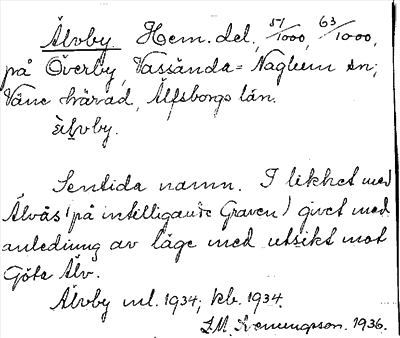 Älvby. Hem. del, 51/1000, 63/1000,
på Överby, Vassända=Naglum sn;
Väne härad, Älfsborgs län.
älvby.
Sentida namn. I likhet med
Älvås (på intilligande Graven) givet med
anledning av läge med utsikt mot
Göta Älv.
Älvby ml. 1934; kb. 1934.
1936.